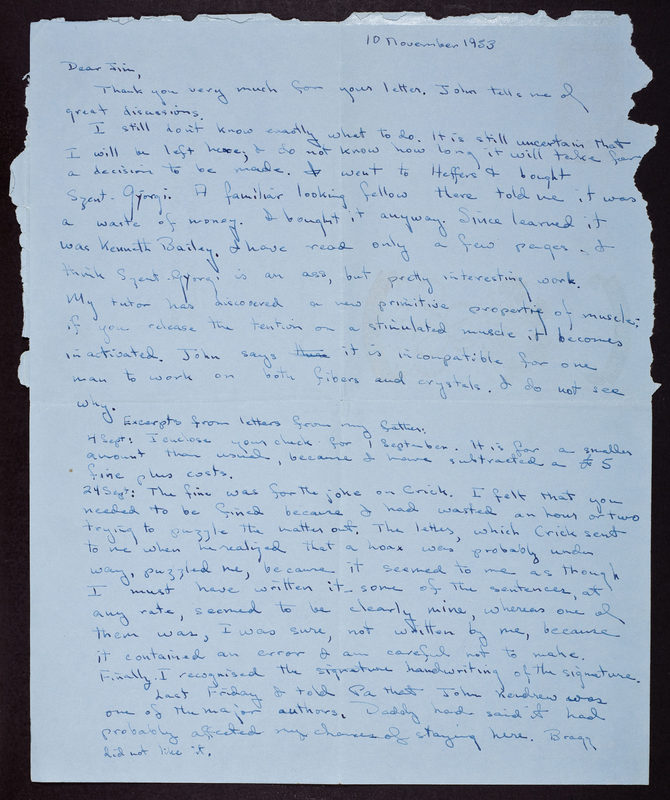 10 November 1953
Dear Jim,
Thank you very much for your letter. John tells me of
great disussions.
I still don't know exactly what to do. It is still uncertain that
I will be left here, & do not know how long it will take for
a decision to be made. I went to Heffers & bought
Szent-Györgi. A familiar looking fellow there told me it was
a waste of money. I bought it anyway. Since learned it
was Kenneth Bailey. I have read only a few pages. I
think Szent-Gyorgi is an ass, but pretty interesting work.
My tutor has discovered a new primitive property of muscle;
if you release the tention on a stimulated muscle it becomes
inactivated. John says it is incompatible for one
man to work on both fibers and crystals. I do not see
why.
Excerpts from letters from my father.
4 Sept: I enclose your check for 1 September. It is for a smaller
amount than usual, because I have subtracted a $5
fine plus costs.
24 Sept: The fine was for the joke on Crick. I felt that you
needed to be fined because I had wasted an hour or two
trying to puzzle the matter out. The letter, which Crick sent
to me when he realized that a hoax was probably under
way, puzzled me, because it seemed to me as though
I must have written it - some of the sentences, at
any rate, seemed to be clearly mine, whereas one of
them was, I was sure, not written by me, because
it contained an error I am careful not to make.
Finally I recognised the signature handwriting of the signature.
Last Friday I told Pa that John Kendrew was
one of the major authors. Daddy had said it had
probably affected my chances of staying here. Bragg
did not like it.